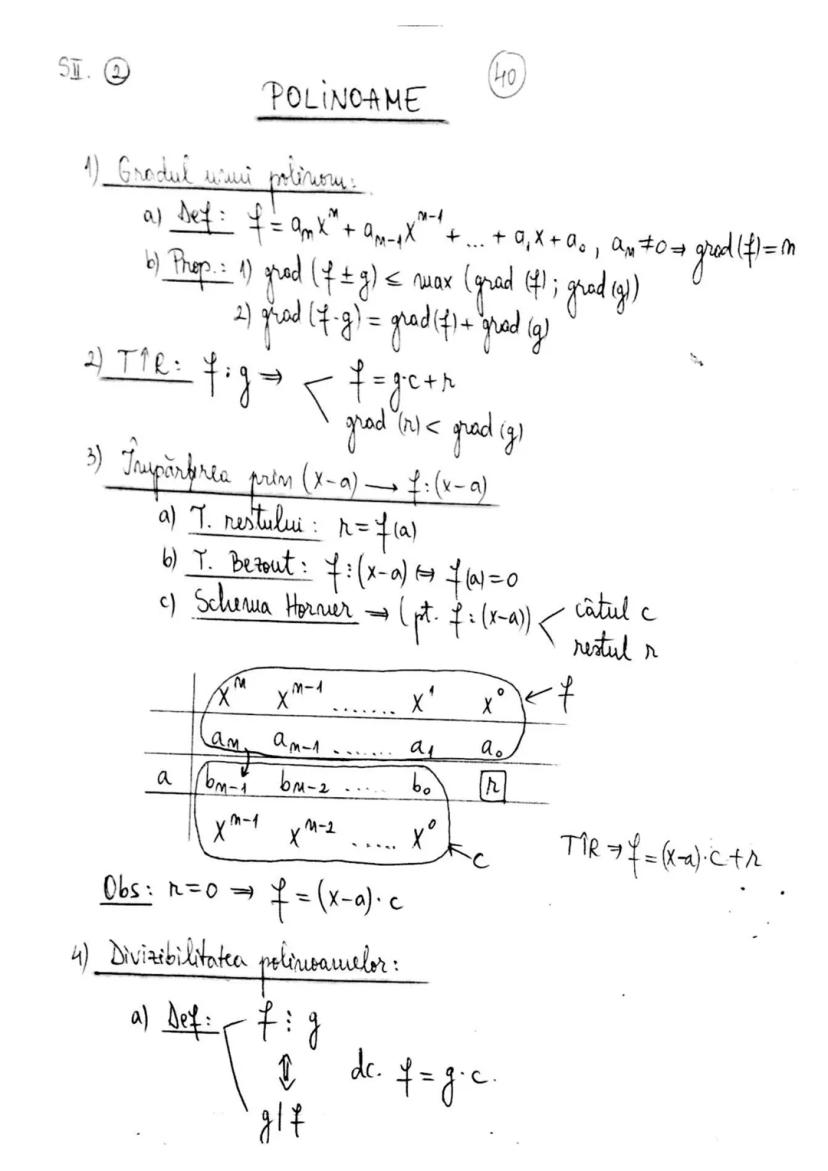 SII. 2
40
POLINOAME
1) Gradul unui polinom:
a) Def: f = aₙxⁿ + aₙ₋₁xⁿ⁻¹ + ... + a₁x + a₀, aₙ ≠ 0 ⇒ grad(f) = n
b) Prop.: 1) grad(f ± g) ≤ max(grad(f); grad(g))
2) grad(f·g) = grad(f) + grad(g)
2) TÎR: f : g ⇒ f = g·c + r
grad(r) < grad(g)
3) Împărțirea prin (x-a) → f:(x-a)
a) T. restului: r = f(a)
b) T. Bezout: f ⋮ (x-a) ⇔ f(a) = 0
c) Schema Horner → (pt. f:(x-a)) câtul c
restul r
xⁿ xⁿ⁻¹ ....... x¹ x⁰ ← f
aₙ aₙ₋₁ ....... a₁ a₀
a bₙ₋₁ bₙ₋₂ ..... b₀ r
xⁿ⁻¹ xⁿ⁻² ..... x⁰ ← c
TÎR → f = (x-a)·c + r
Obs: r = 0 ⇒ f = (x-a)·c
4) Divizibilitatea polinoamelor:
a) Def: f ⋮ g
⇕ dc. f = g·c.
g | f